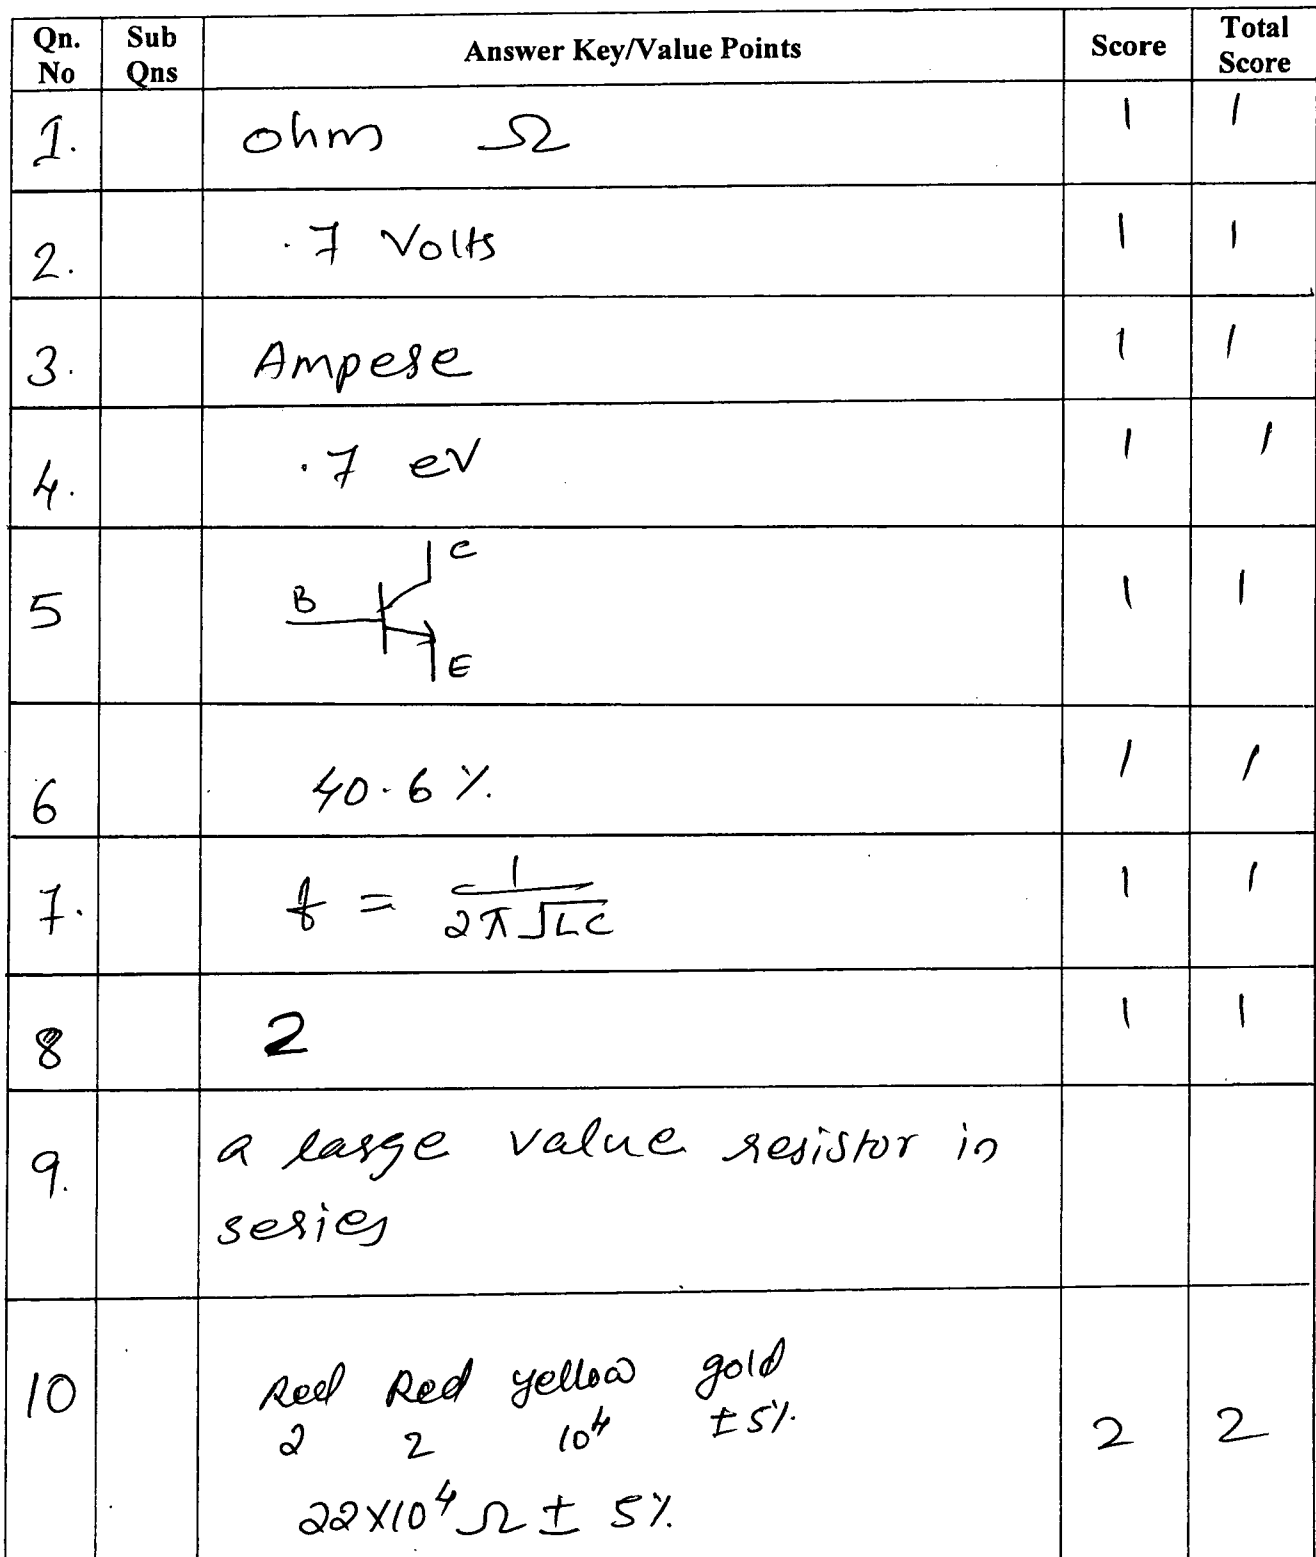 Qn. No Sub Qns Answer Key/Value Points Score Total Score
1. ohm Ω 1 1
2. .7 Volts 1 1
3. Ampere 1 1
4. .7 eV 1 1
5 B C E 1 1
6 40.6 % 1 1
7. f = 1 / 2π√LC 1 1
8 2 1 1
9. a large value resistor in
series
10 Red Red yellow gold
2 2 10⁴ ±5% 2 2
22×10⁴ Ω ± 5%